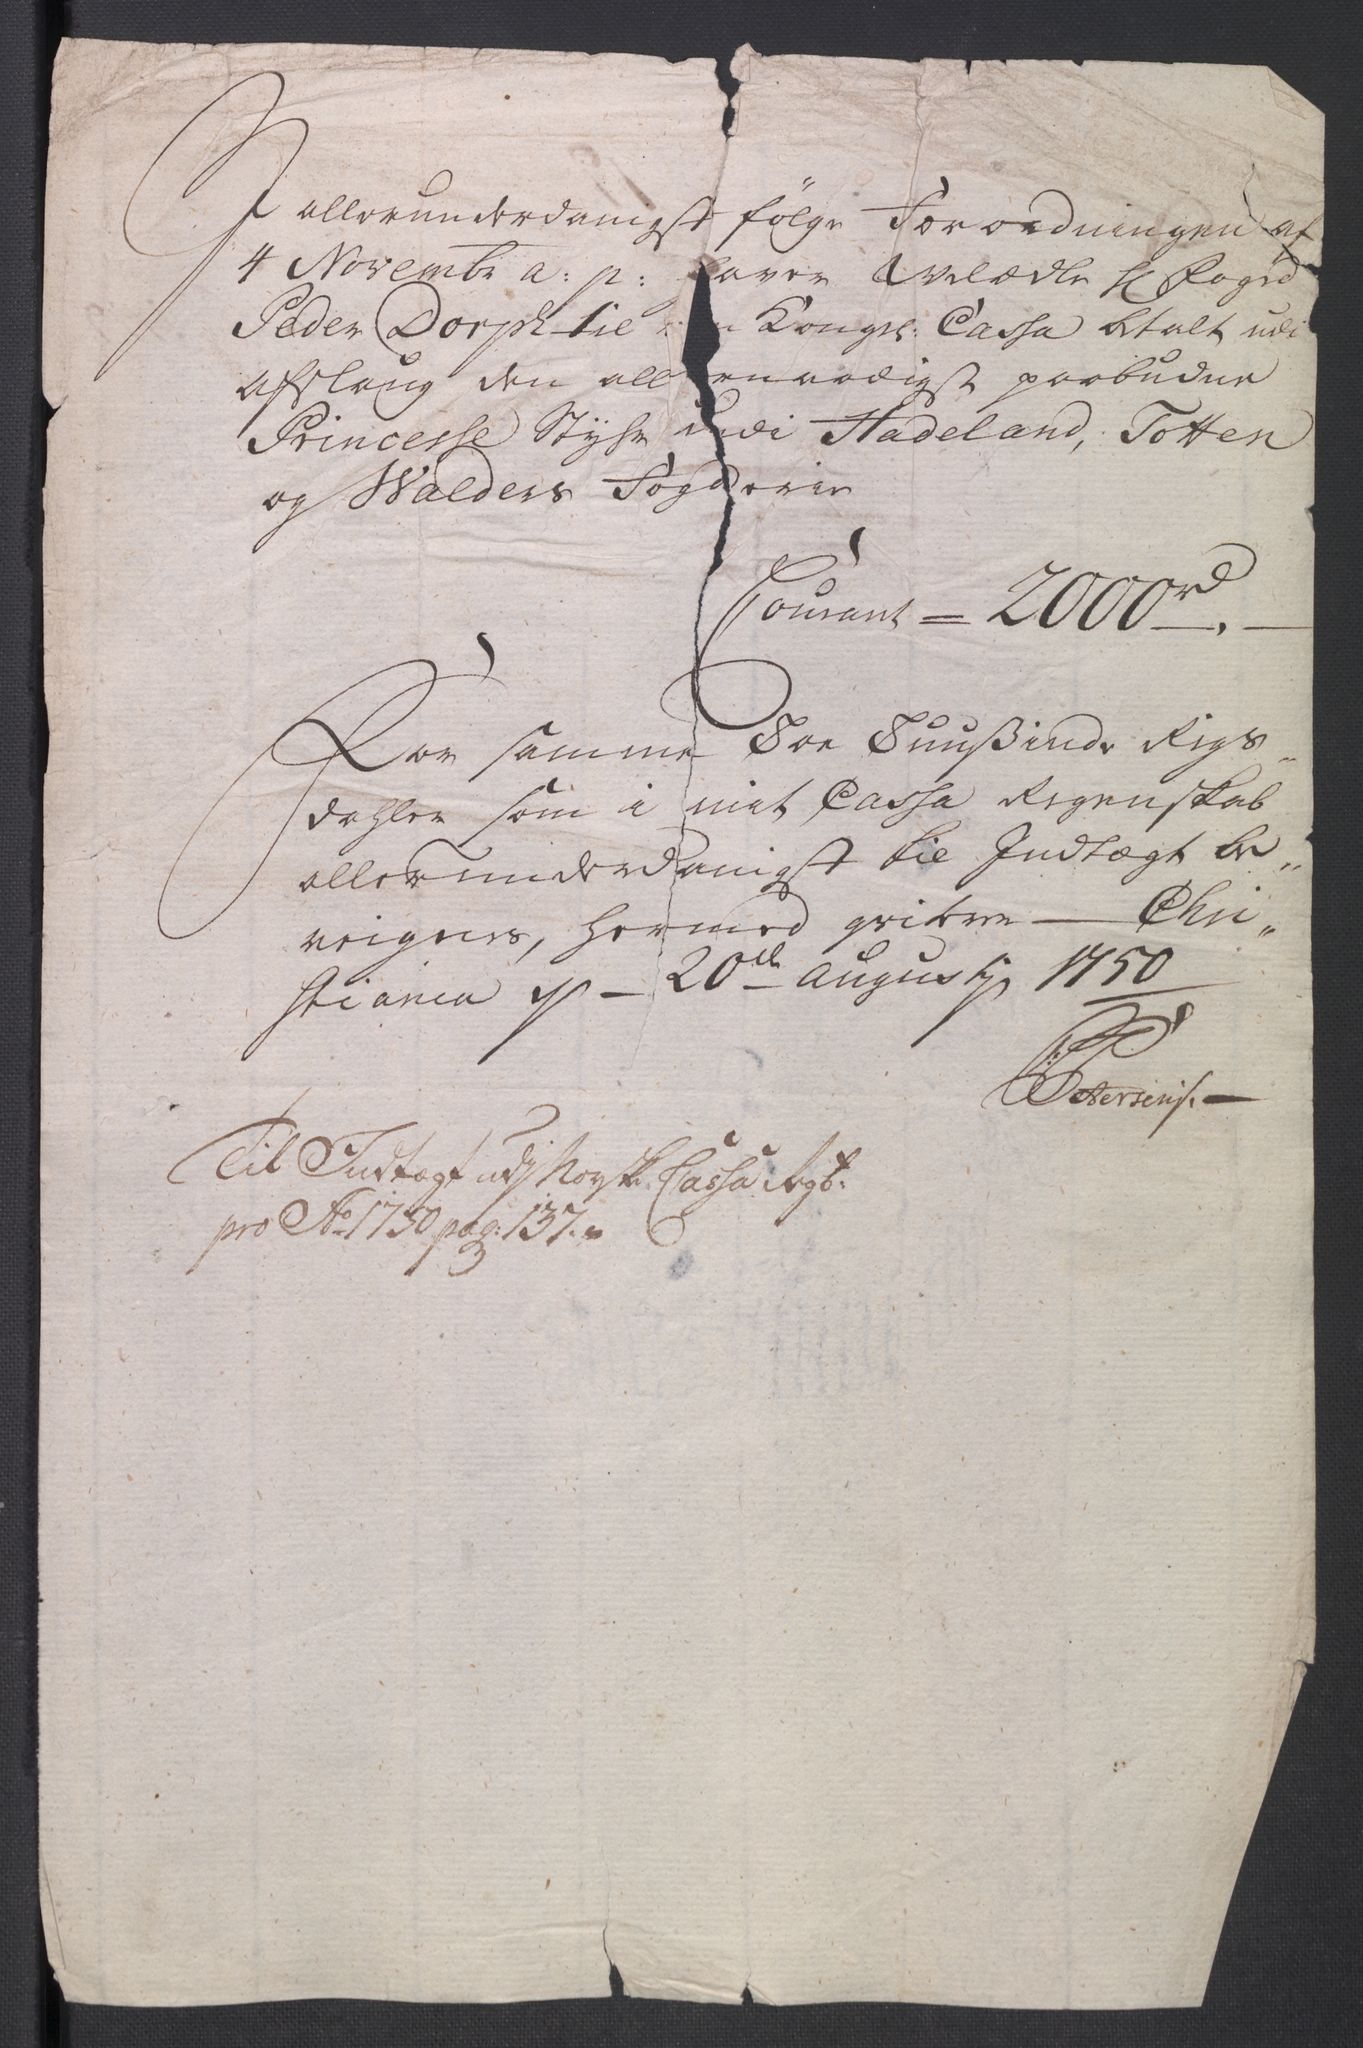 I allerunderdanigst følge Forordningen af
4 Novembr a: p: haver Velædle Hr Foged
Peder Dorph til Kongel: Cassa betalt udi
afslaug den allernaadigst paabudne
Princesse Styhr udi Hadeland, Totten
og Walders Fogderie
Courant = 2000 rd —. —
For samme Toe Tuußinde Rigs„
dahler som i mit Cassa Regenskab
allerunderdanigst til Indtægt be„
reignes, hermed qviterer — Chri„
stiania d — 20de Augusty 1750
Petersen. —
Til Indtægt udj Norsk Cassa Regsk:
pro Ao 1750 pag: 137.